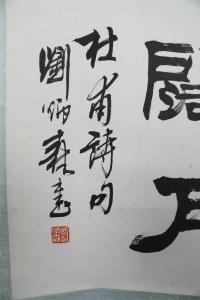 闊月
杜甫詩句
劉炳森書